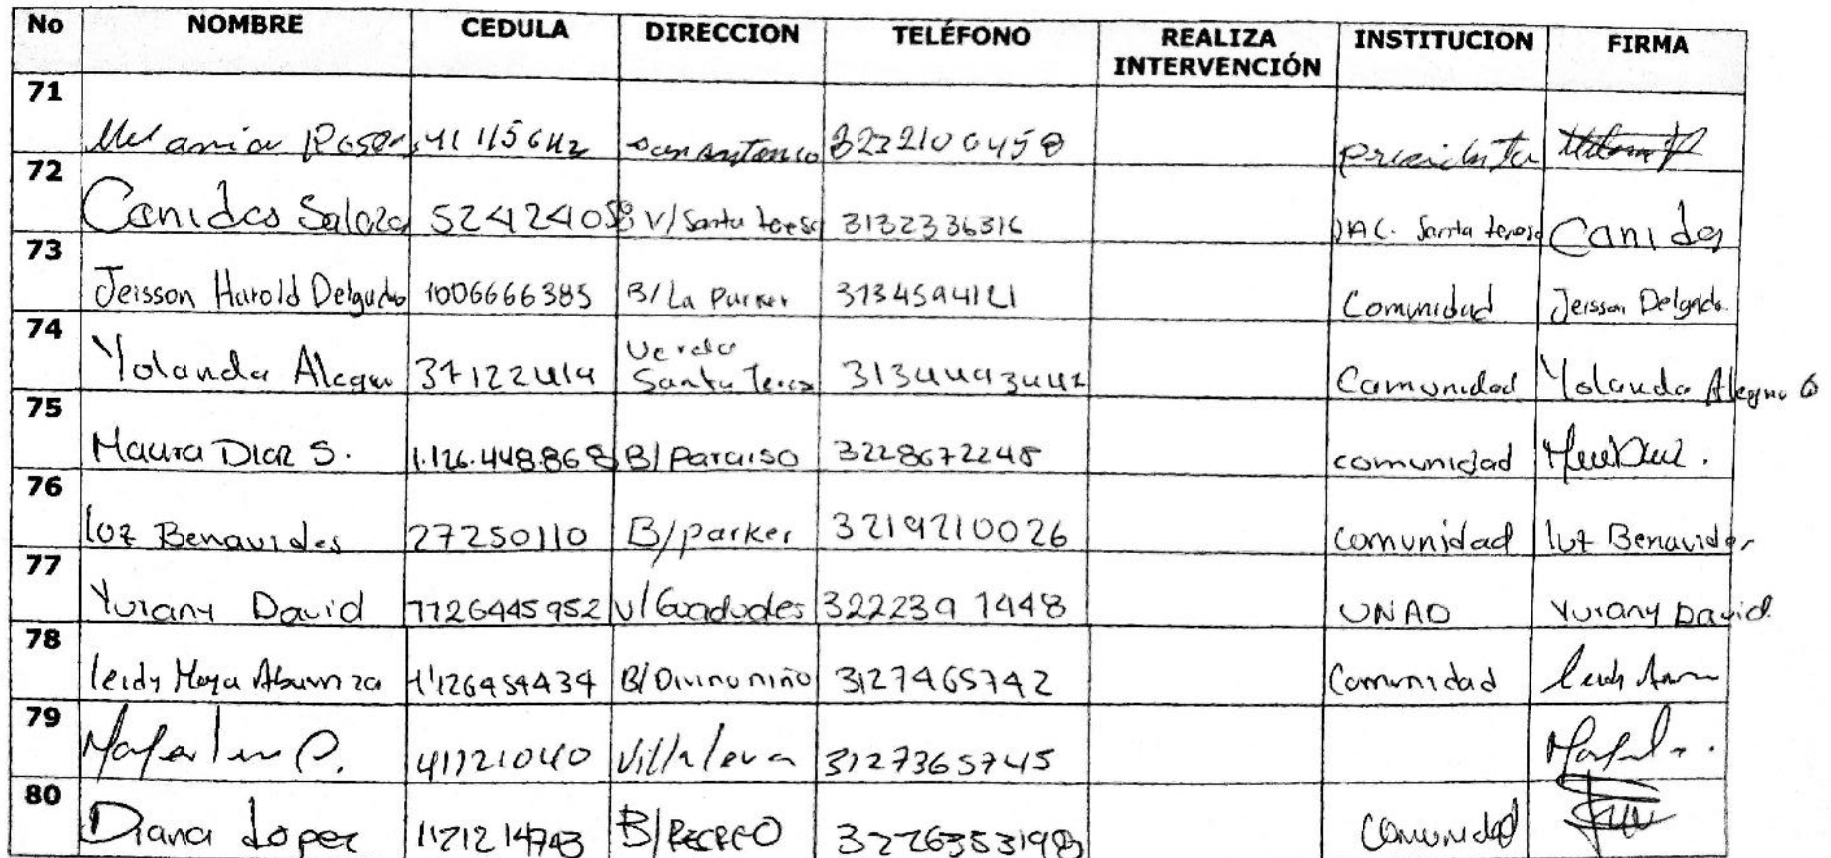 No NOMBRE CEDULA DIRECCION TELÉFONO REALIZA INTERVENCIÓN INSTITUCION FIRMA
71 41115642 san antonio 3222100458
72 Canidas Salaza 52424058 V/Santa teresa 3132336316 JAC. Santa teresa Canidas
73 Jeisson Harold Delgado 1006666385 B/La Parker 3134594121 Comunidad Jeisson Delgado.
74 Yolanda Alegria 37122414 Vereda Santa Teresa 31344493442 Comunidad Yolanda Alegria
75 Maura Diaz S. 1.126.448.868 B/Paraiso 3228672248 comunidad
76 luz Benavides 27250110 B/parker 3219210026 comunidad luz Benavides
77 Yurany David 1126445952 V/Guaduales 3222391448 UNAD Yurany David.
78 leidy Moya 1'126454434 B/Divino niño 3127465742 Comunidad
79 41121040 Villaleva 3127365745
80 Diana Lopez 1121214743 B/RECREO 3226353198 Comunidad